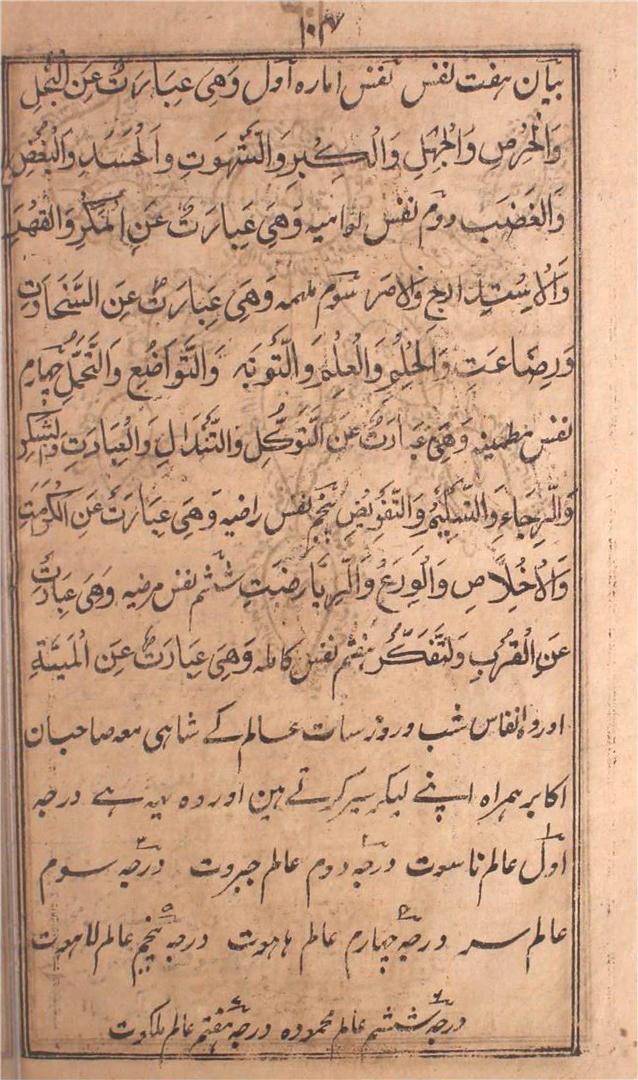 ۱۰۴۷
بیان هفت نفس نفس امارہ اول وَهِیَ عِبَارَتٌ عَنِ الْبُخْلِ
وَالْحِرْصِ وَالْجَهْلِ وَالْكِبْرِ وَالشَّهْوَتِ وَالْحَسَدِ وَالْبُغْضِ
وَالْغَضَبِ دوم نفس لوامیه وَهِیَ عِبَارَتٌ عَنِ الْمَكْرِ وَالْقَهْدِ
وَالْاِسْتِدْرَاجِ وَالامر سوم ملهمه وَهِیَ عِبَارَتٌ عَنِ السَّخَاوَتِ
وَرِضَاعَتِ وَالْحِلْمِ وَالْعِلْمِ وَالتَّوْبَه وَالتَّوَاضُعِ وَالتَّحَمُّلِ چهارم
نفس مطمینه وَهِیَ عِبَارَتٌ عَنِ التَّوَكُّلِ وَالتَّنْدَالِ وَالْعِبَادَتِ وَالشُّكْرِ
وَالرِّجَاءِ وَالتَّسْلِیْمِ وَالتَّفْوِیْضِ پنجم نفس راضیه وَهِیَ عِبَارَتٌ عَنِ الْكَرَمَتِ
وَالْاِخْلَاصِ وَالْوَرَعِ وَالرِّیَارِضَتِ ششم نفس مرضیه وَهِیَ عِبَارَتٌ
عَنِ الْقُرْبِ وَلتَّفَكُّرْ هفتم نفس کامله وَهِیَ عِبَارَتٌ عَنِ الْمَیِّتَةِ
اور وہ انفاس شب و روز سات عالم کے شاہی معہ صاحبان
اکابر ہمراہ اپنے لیکر سیر کرتے ہین اور وہ یہہ ہے درجہ
اول عالم ناسوت درجہ ۲ دوم عالم جبروت درجہ ۳ سوم
عالم سر درجہ ۴ چہارم عالم ہاہوت درجہ ۵ پنجم عالم لاہوت
درجہ ۶ ششم عالم محمودہ درجہ ۷ ہفتم عالم ملکوت